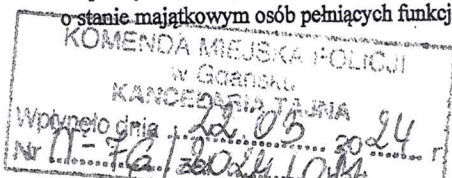 o stanie majątkowym osób pełniących funkcj
KOMENDA MIEJSKA POLICJI
w Gdańsku
KANCELARIA TAJNA
Wpłynęło dnia 22.05 2024 r
Nr